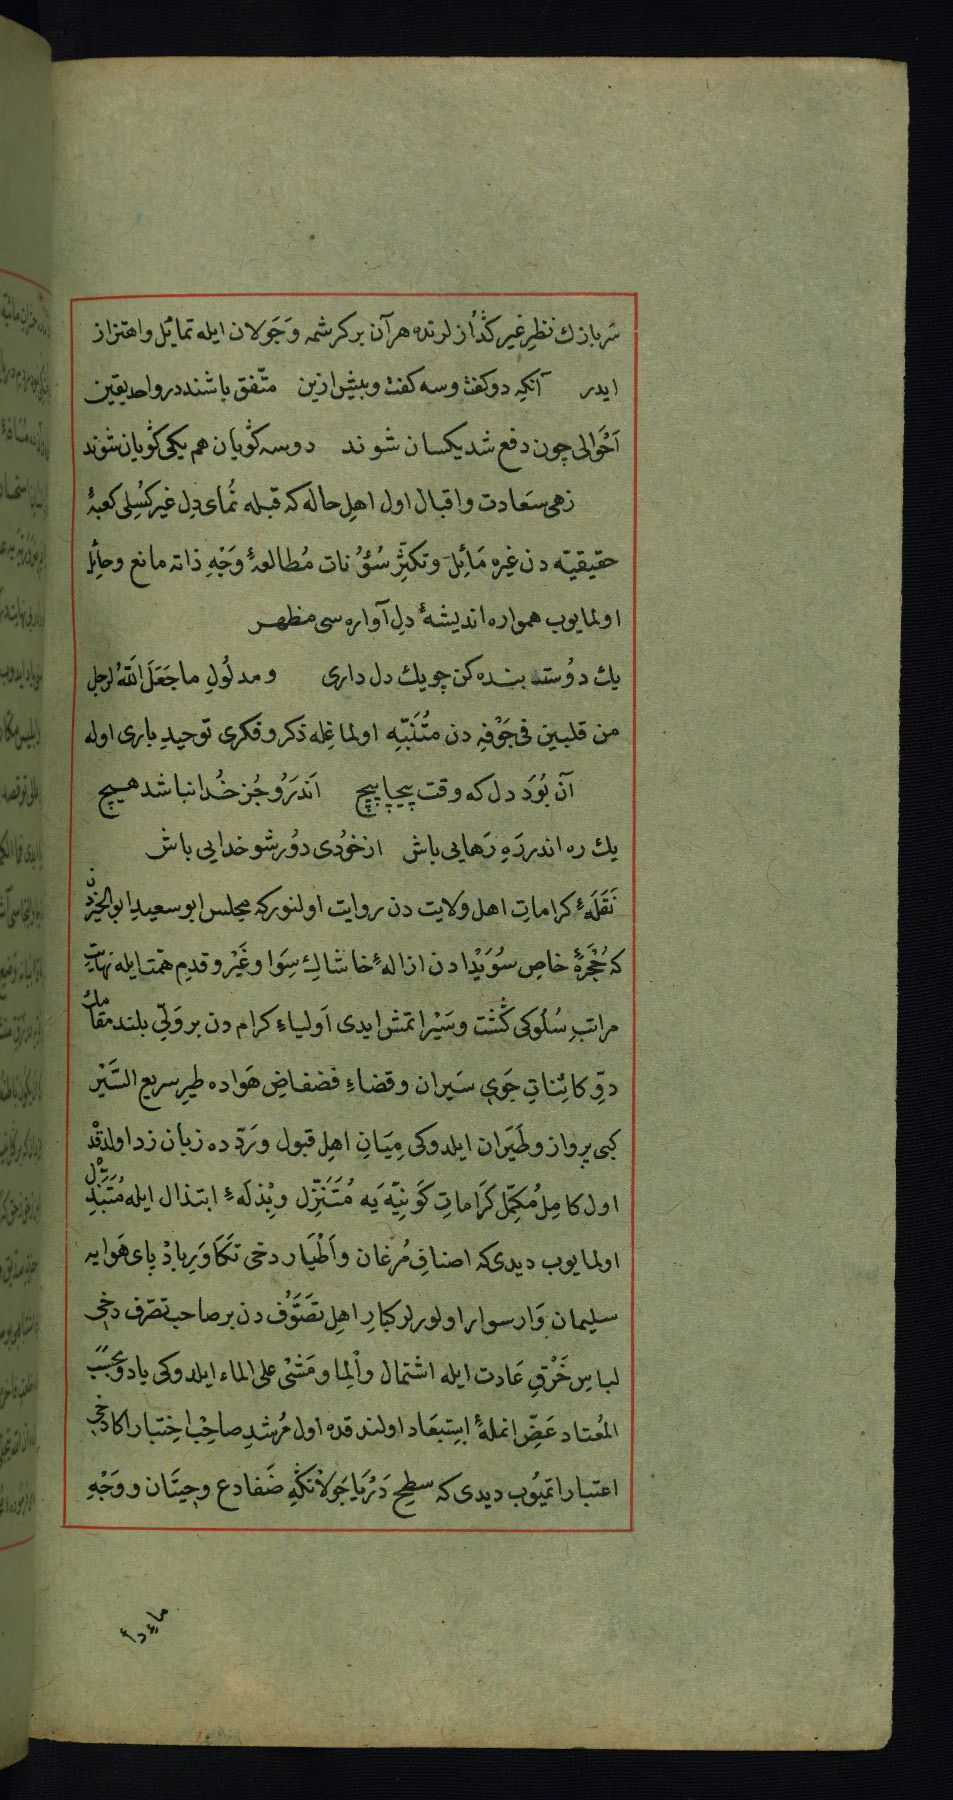 سَربازك نظرِ غیر کُدازلرنده هر آن بر کرشمه وَجَولان ایله تمایُل واهتزاز
ایدر آنکه دو کفت وسه کفت وبیش ازین متّفق باشند در واحد یقین
اَحْوَلی چون دفع شد یکسان شوند دوسه کویان هم یکی کویان شوند
زهی سَعادت واقبال اول اهلِ حاله که قبله نُمای دِل غیر کُسِلی کعبۀ
حقیقیّه دن غیره مَائِل وتکثّرِ شُؤُنات مُطالعۀ وَجْهِ ذاته مانع وحائِل
اولمایوب همواره اندیشۀ دِلِ آواره سی مظهر
یك دوُست بنده کن چو یك دل داری ومدلُولِ ما جَعَلَ اللّٰهُ لرجل
من قلبین فی جَوْفِه دن مُتَنَبّه اولماغله ذکر وفکری توحیدِ باری اوله
آن بُوَد دل که وقت پیچاپیچ اَندَرُو جُز خُدا نباشد هیچ
یك ره اندر رَهِ رَهایی باش از خوُدی دوُر شو خدایی باش
نَقَلَۀ کراماتِ اهل ولایت دن روایت اولنور که مجلس ابو سعیدِ ابو الخیردن
که حُجْرَۀ خاصِ سُوَیْدادن ازالۀ خاشاكِ سِوَا وغَیْر وقدمِ همّت ایله نهایتِ
مراتبِ سُلوُکی کَشْت وسَیْر اتمش ایدی اَولیاءِ کرام دن بر وَلیّ بلند مقامك
دوِّ کائناتِ جَوی سَیران وفضاءِ فضفاضِ هَواده طیرِ سریع السّیْر
کبی پرواز وطَیَران ایلدوکی مِیَانِ اهلِ قبول ورَدّ ده زبان زد اولدقده
اول کامِلِ مُکمّل کَرَاماتِ کَونِیّه یَه مُتَنَزّل وبِذْلَۀ ابتذال ایله مُتَبَذِّل
اولمایوب دیدی که اصنافِ مُرغان واَطْیَار دخی تکاوَرِ بادْ پایِ هَوایه
سلیمان وَار سوار اولورلر کبارِ اهلِ تصَوُّف دن بر صاحب تصرّف دخی
لباسِ خَرْقِ عَادت ایله اشتمال ومَشْی علی الماء ایلدوکی یاد وبحسب
المُعتاد عَضِّ انملۀ اِستِبعَاد اولندقده اول مُرشدِ صاحْب اِختبار اکا دخی
اعتبار اتمیُوب دیدی که سطحِ دَرْیَا جَولانکَهِ ضَفادع وحِیتَان ووَجْهِ